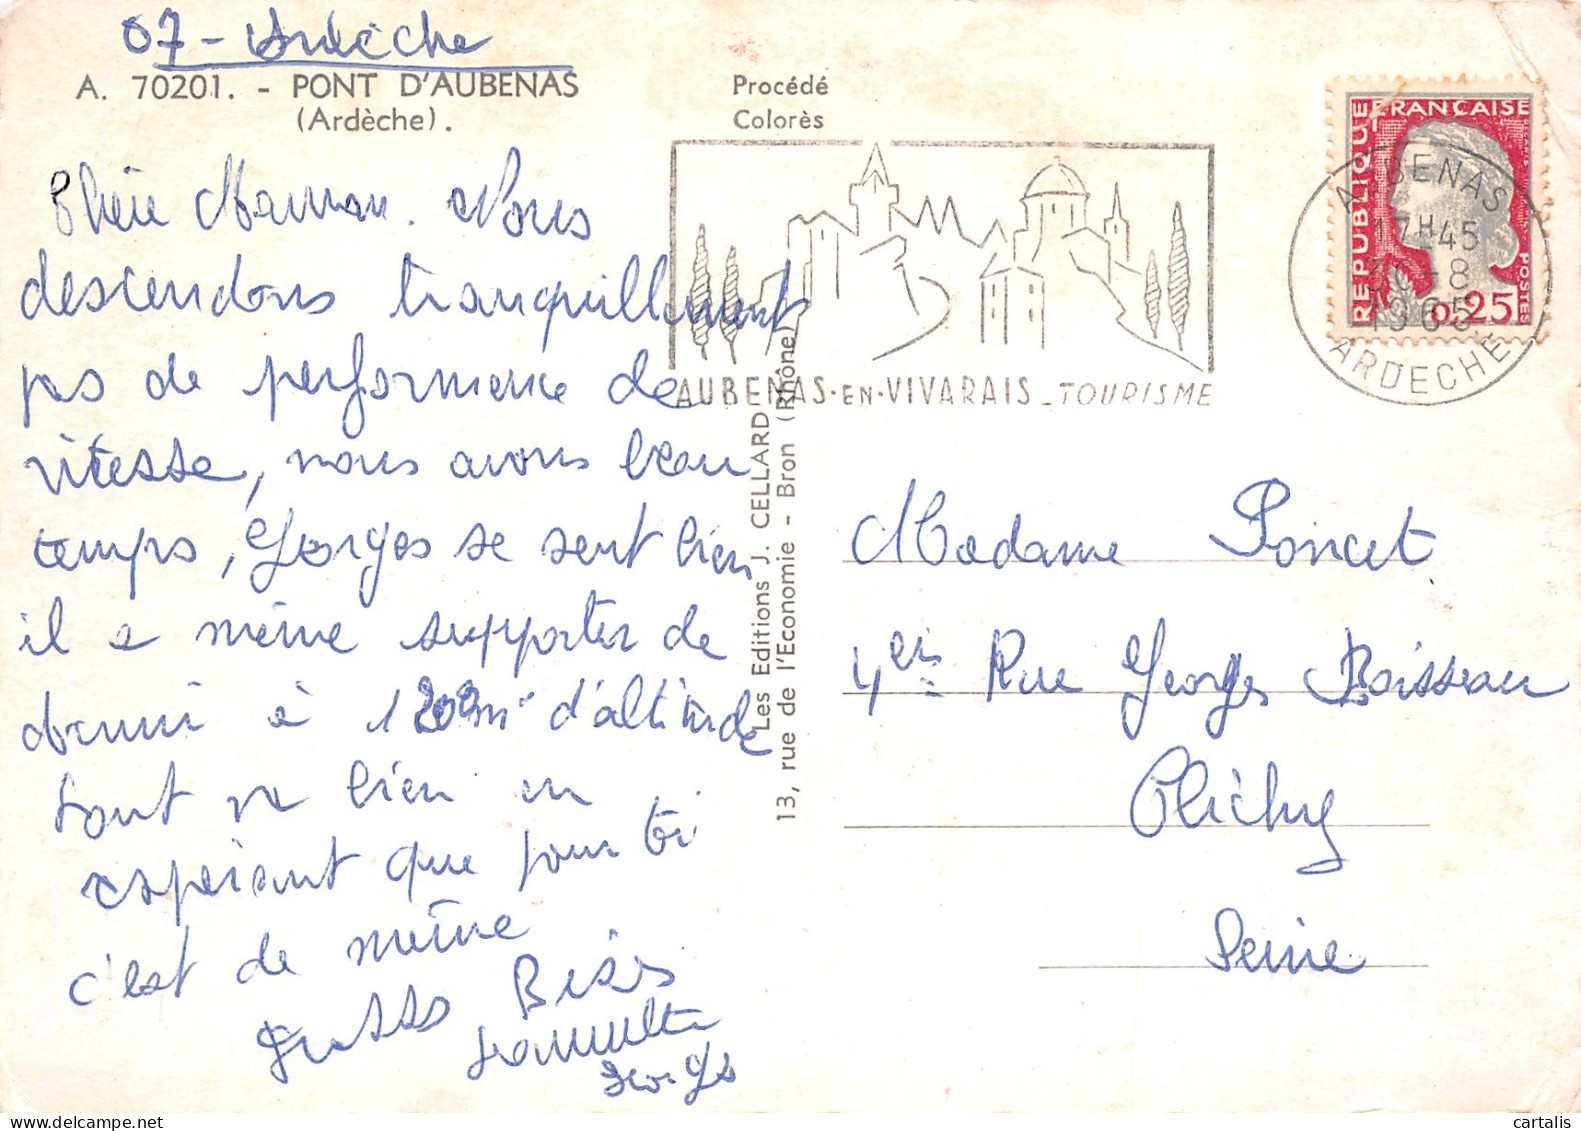 07 - Ardèche
A. 70201. - PONT D'AUBENAS
(Ardèche).
Procédé
Colorès
Chère Maman. Nous
descendons tranquillement
pas de performence de
vitesse, nous avons beau
temps, Georges se sent bien
il a même supporter de
d'altitude
tout va bien en
espérant que pour toi
c'est de même
Grosses Bises
Georges
Les Editions J. CELLARD
13, rue de l'Economie - Bron (Rhône)
AUBENAS-EN-VIVARAIS - TOURISME
REPUBLIQUE FRANÇAISE
POSTES
0,25
AUBENAS
17H45
-8
1965
ARDECHE
Madame Poncet
4 bis Rue Georges Boisseau
Clichy
Seine